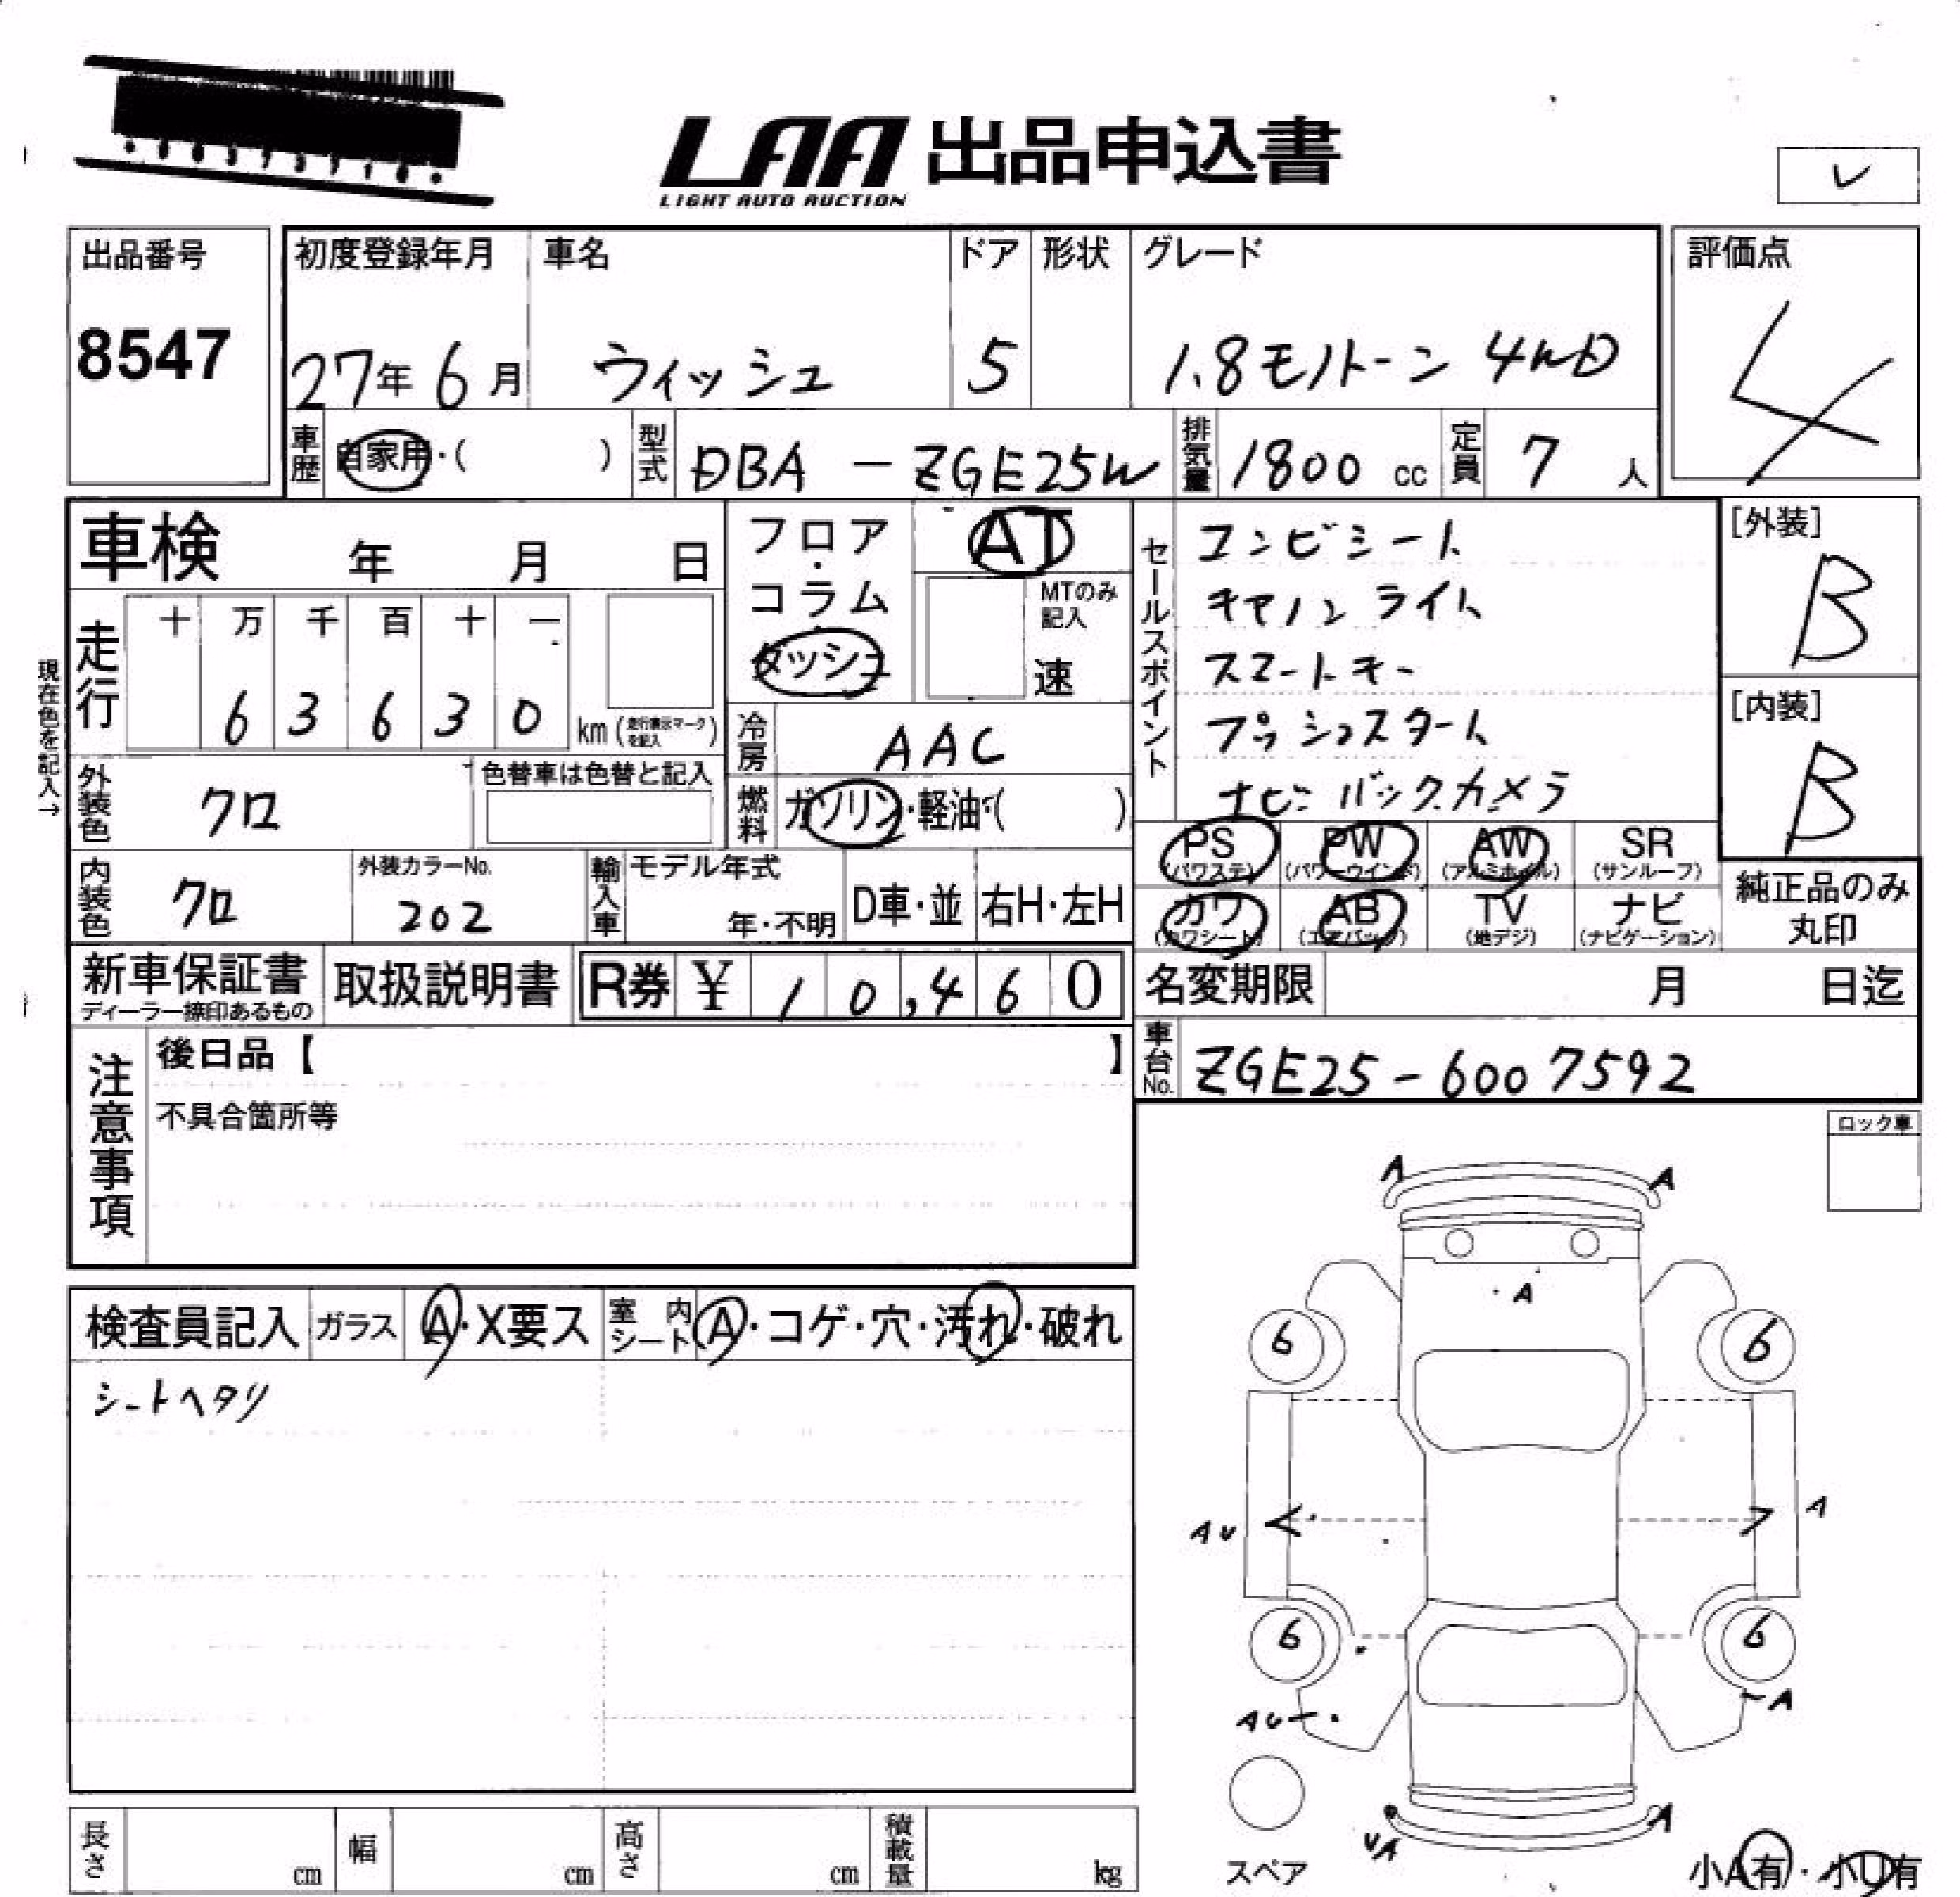 LAA 出品申込書
LIGHT AUTO AUCTION
レ
出品番号
8547
初度登録年月
27年 6月
車名
ウィッシュ
ドア
5
形状
グレード
1.8モノトーン 4WD
評価点
4
車歴
自家用・( )
型式
DBA - ZGE25W
排気量
1800 cc
定員
7 人
車検 年 月 日
フロア・コラム・ダッシュ
AT
MTのみ記入
速
セールスポイント
コンビシート
キセノンライト
スマートキー
プッシュスタート
ナビ バックカメラ
[外装]
B
[内装]
B
現在色を記入→
走行
十 万 千 百 十 一
6 3 6 3 0 km (走行表示マークを記入)
冷房
AAC
外装色
クロ
色替車は色替と記入
燃料
ガソリン・軽油・( )
PS (パワステ)
PW (パワーウインド)
AW (アルミホイル)
SR (サンルーフ)
カワ (カワシート)
AB (エアバッグ)
TV (地デジ)
ナビ (ナビゲーション)
純正品のみ丸印
内装色
クロ
外装カラーNo.
202
輸入車
モデル年式
年・不明
D車・並
右H・左H
新車保証書
ディーラー捺印あるもの
取扱説明書
R券 ¥ 10,460
名変期限 月 日迄
車台No.
ZGE25-6007592
注意事項
後日品【 】
不具合箇所等
ロック車
検査員記入
ガラス
A・X要ス
室内シート
A・コゲ・穴・汚れ・破れ
シートヘタリ
A A
A
6 6
AU A
6 6
AU A
UA A
スペア
小A有・小U有
長さ cm
幅 cm
高さ cm
積載量 kg